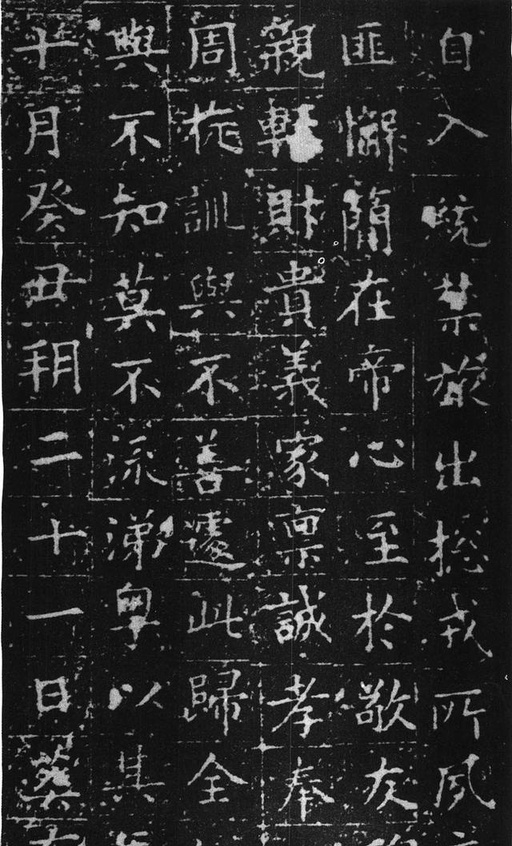 自入統禁旅出揔戎所夙
匪懈簡在帝心至於敬友
親輕財貴義家禀誠孝奉
周旋訓與不善遽此歸全
與不知莫不流涕粤以其
十月癸丑朔二十一日葵